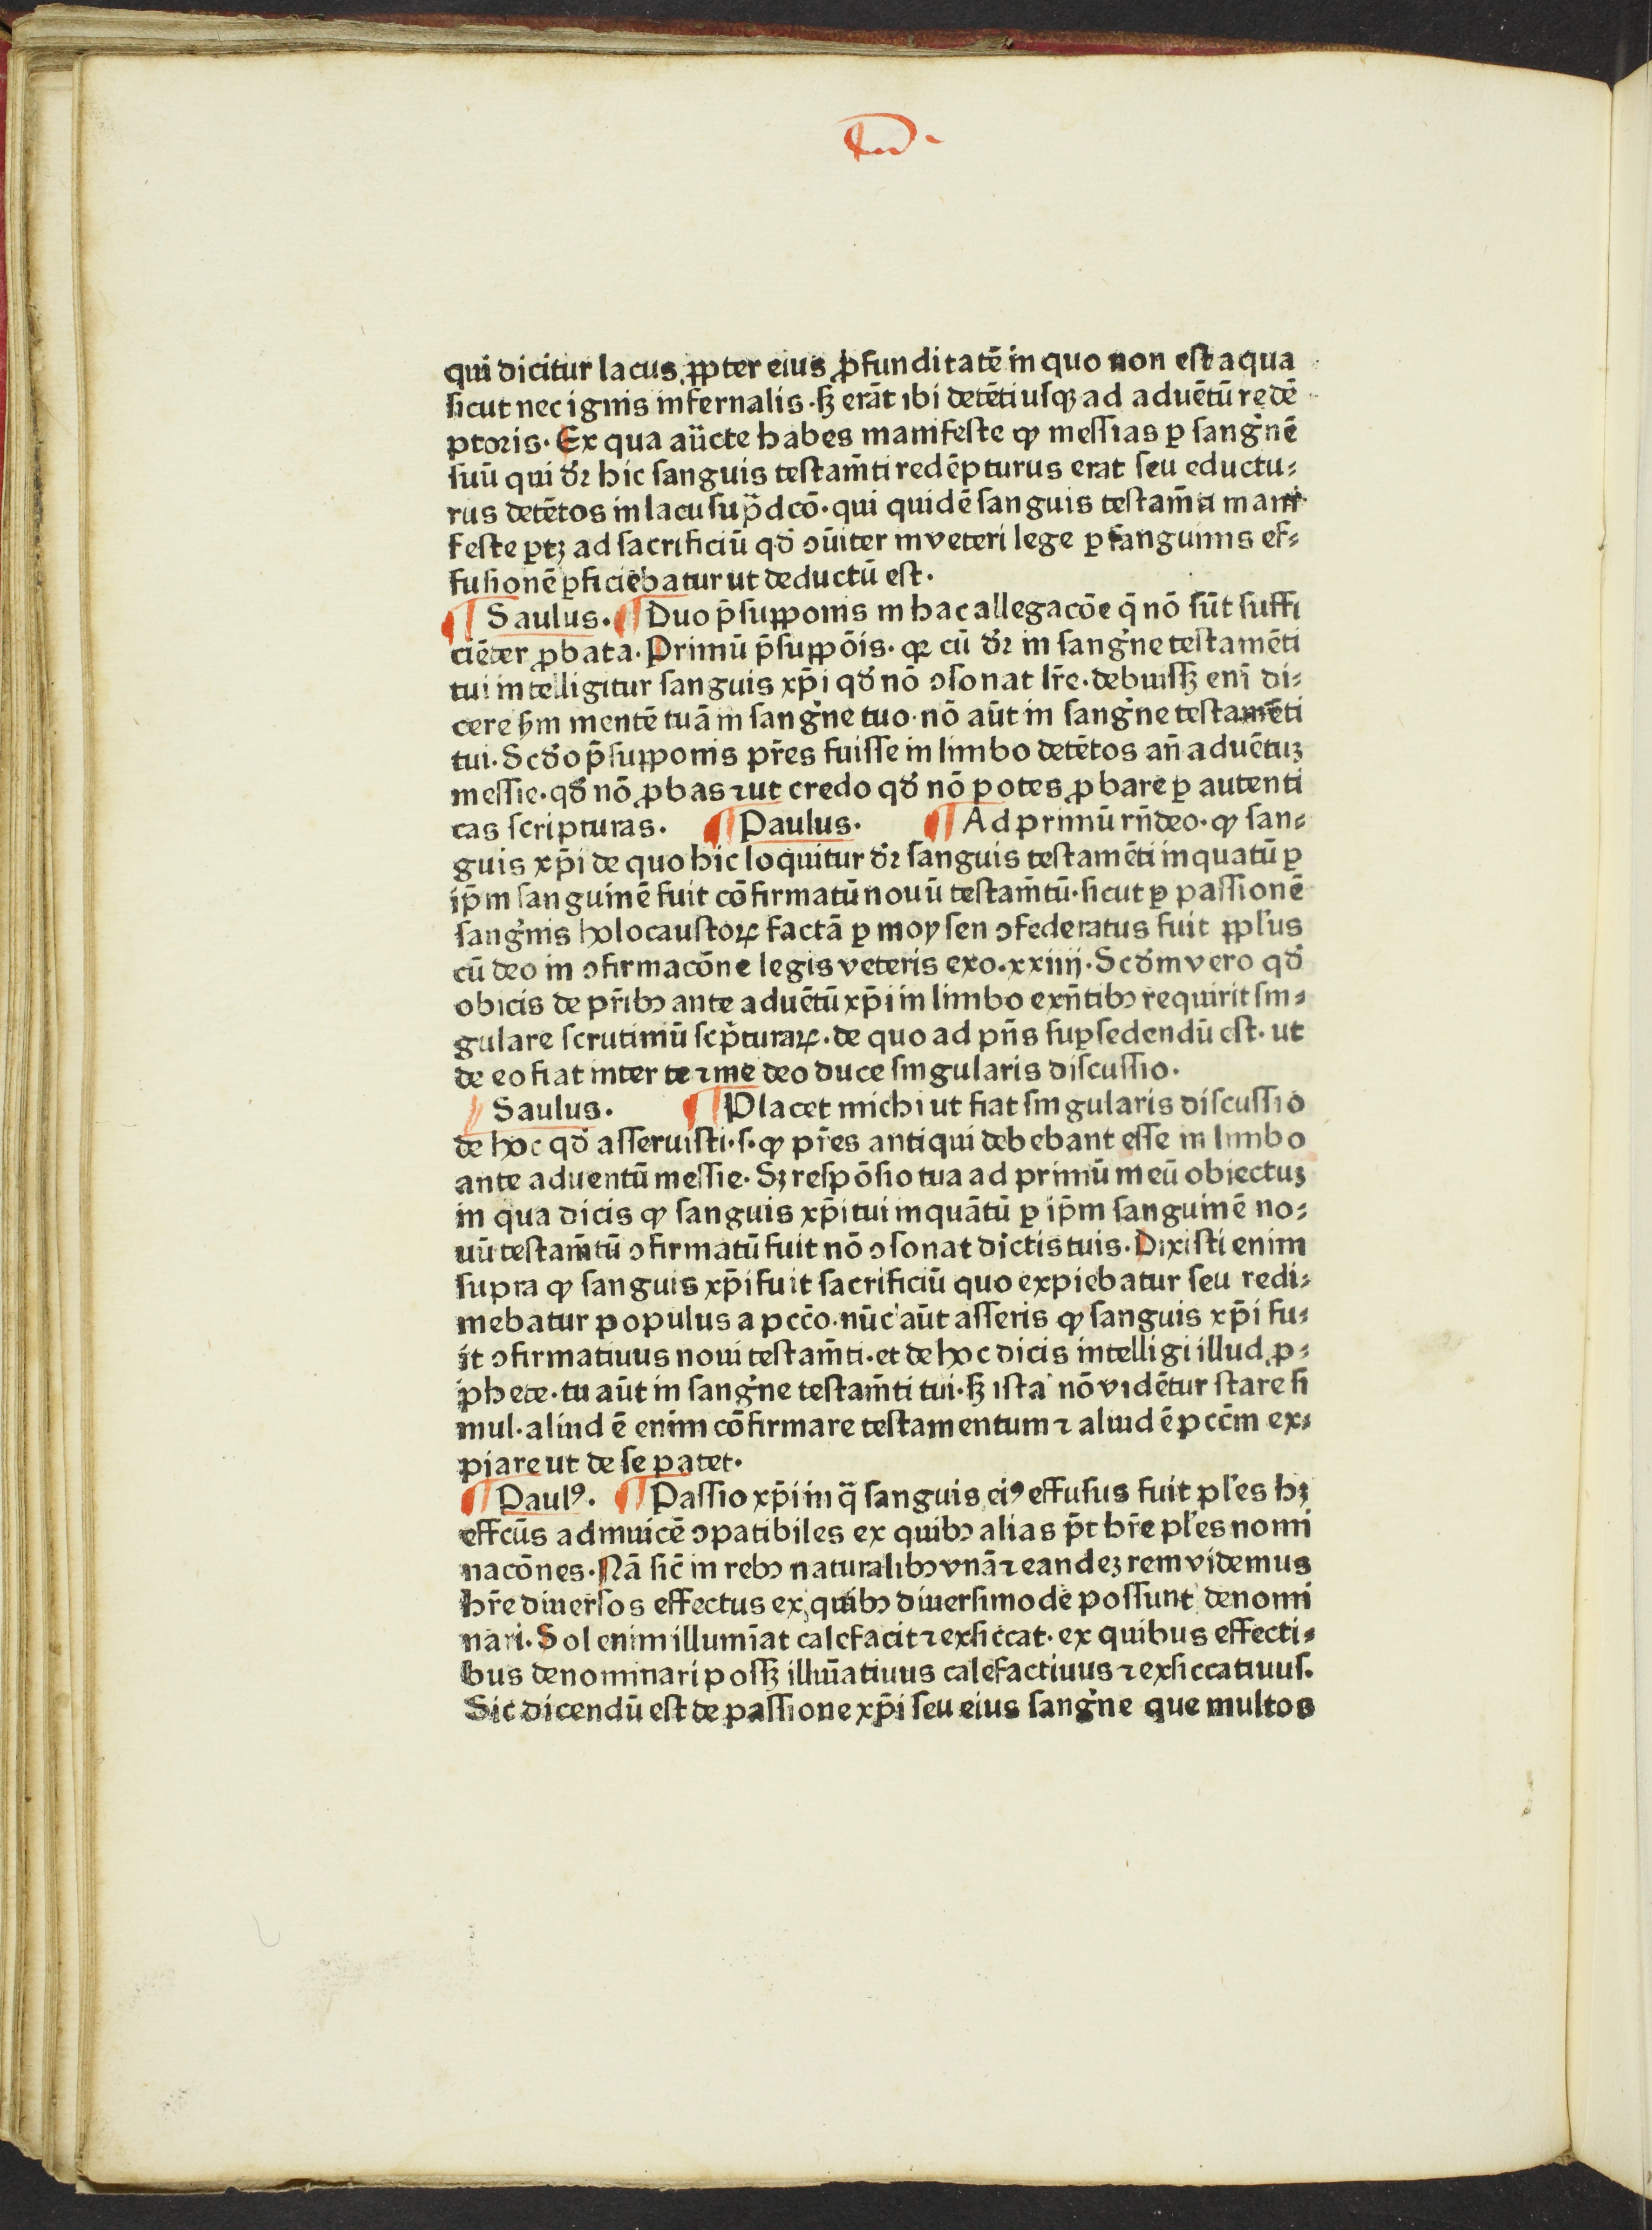 qui dicitur lacus ꝓpter eius ꝓfunditatē in quo non est aqua
sicut nec ignis infernalis · sꝫ erāt ibi detēti usqꝫ ad aduētū redē
ptoris · Ex qua aūcte habes manifeste ꝙ messias ꝑ sangnē
suū qui dr̄ hic sanguis testam̄ti redēpturus erat seu eductu⸗
rus detētos in lacu sup̄dcō · qui quidē sanguis testam̄ti mani
feste ꝑtꝫ ad sacrificiū qd̄ ꝯūiter in veteri lege ꝑ sanguinis ef⸗
fusionē ꝑficiebatur ut deductū est .
¶ Saulus . ¶ Duo p̄supponis in hac allegacōe q̄ nō sūt suffi
ciēter ꝓbata · Primū p̄suppōis · qꝛ cū dr̄ in sangne testamēti
tui intelligitur sanguis xp̄i qd̄ nō ꝯsonat lr̄e · debuissꝫ enī di⸗
cere ẜm mentē tuā in sangne tuo · nō aūt in sangne testamēti
tui · Scd̄o p̄supponis pr̄es fuisse in limbo detētos an̄ aduētuꝫ
messie · qd̄ nō ꝓbas ⁊ ut credo qd̄ nō potes ꝓbare ꝑ autenti
cas scripturas . ¶ Paulus . ¶ Ad primū rn̄deo · ꝙ san⸗
guis xp̄i de quo hic loquitur dr̄ sanguis testamēti inquatū ꝑ
ip̄m sanguinē fuit cōfirmatū nouū testam̄tū · sicut ꝑ passionē
sangnis holocaustoꝝ factā ꝑ moysen ꝯfederatus fuit ppl̄us
cū deo in ꝯfirmacōne legis veteris exo . xxiiij · Scd̄m vero qd̄
obicis de pr̄ibꝫ ante aduētū xp̄i in limbo exn̄tibꝫ requirit sin⸗
gulare scrutiniū scp̄turaꝝ · de quo ad pn̄s suꝑsedendū est · ut
de eo fiat inter te ⁊ me deo duce singularis discussio .
Saulus . ¶ Placet michi ut fiat singularis discussio
de hoc qd̄ asseruisti · s · ꝙ pr̄es antiqui debebant esse in limbo
ante aduentū messie · Sꝫ respōsio tua ad primū meū obiectuꝫ
in qua dicis ꝙ sanguis xp̄i tui inquātū ꝑ ip̄m sanguinē no⸗
uū testam̄tū ꝯfirmatū fuit nō ꝯsonat dictis tuis · Dixisti enim
supra ꝙ sanguis xp̄i fuit sacrificiū quo expiebatur seu redi⸗
mebatur populus a pcc̄o · nūc aūt asseris ꝙ sanguis xp̄i fu⸗
it ꝯfirmatiuus noui testam̄ti · et de hoc dicis intelligi illud ꝓ⸗
phete · tu aūt in sangne testam̄ti tui · sꝫ ista nō vidētur stare si
mul · aliud ē enim cōfirmare testamentum ⁊ aliud ē pcc̄m ex⸗
piare ut de se patet .
¶ Paulꝰ . ¶ Passio xp̄i in q̄ sanguis eiꝰ effusus fuit pl̄es hꝫ
effcūs adinuicē ꝯpatibiles ex quibꝫ alias p̄t hr̄e pl̄es nomi
nacōnes · Nā sic̄ in rebꝫ naturalibꝫ vnā ⁊ eandeꝫ rem videmus
hr̄e diuersos effectus ex quibꝫ diuersimode possunt denomi
nari · Sol enim illumīat calefacit ⁊ exsiccat · ex quibus effecti⸗
bus denominari possꝫ illuīatiuus calefactiuus ⁊ exsiccatiuus .
Sic dicendū est de passione xp̄i seu eius sangne que multos